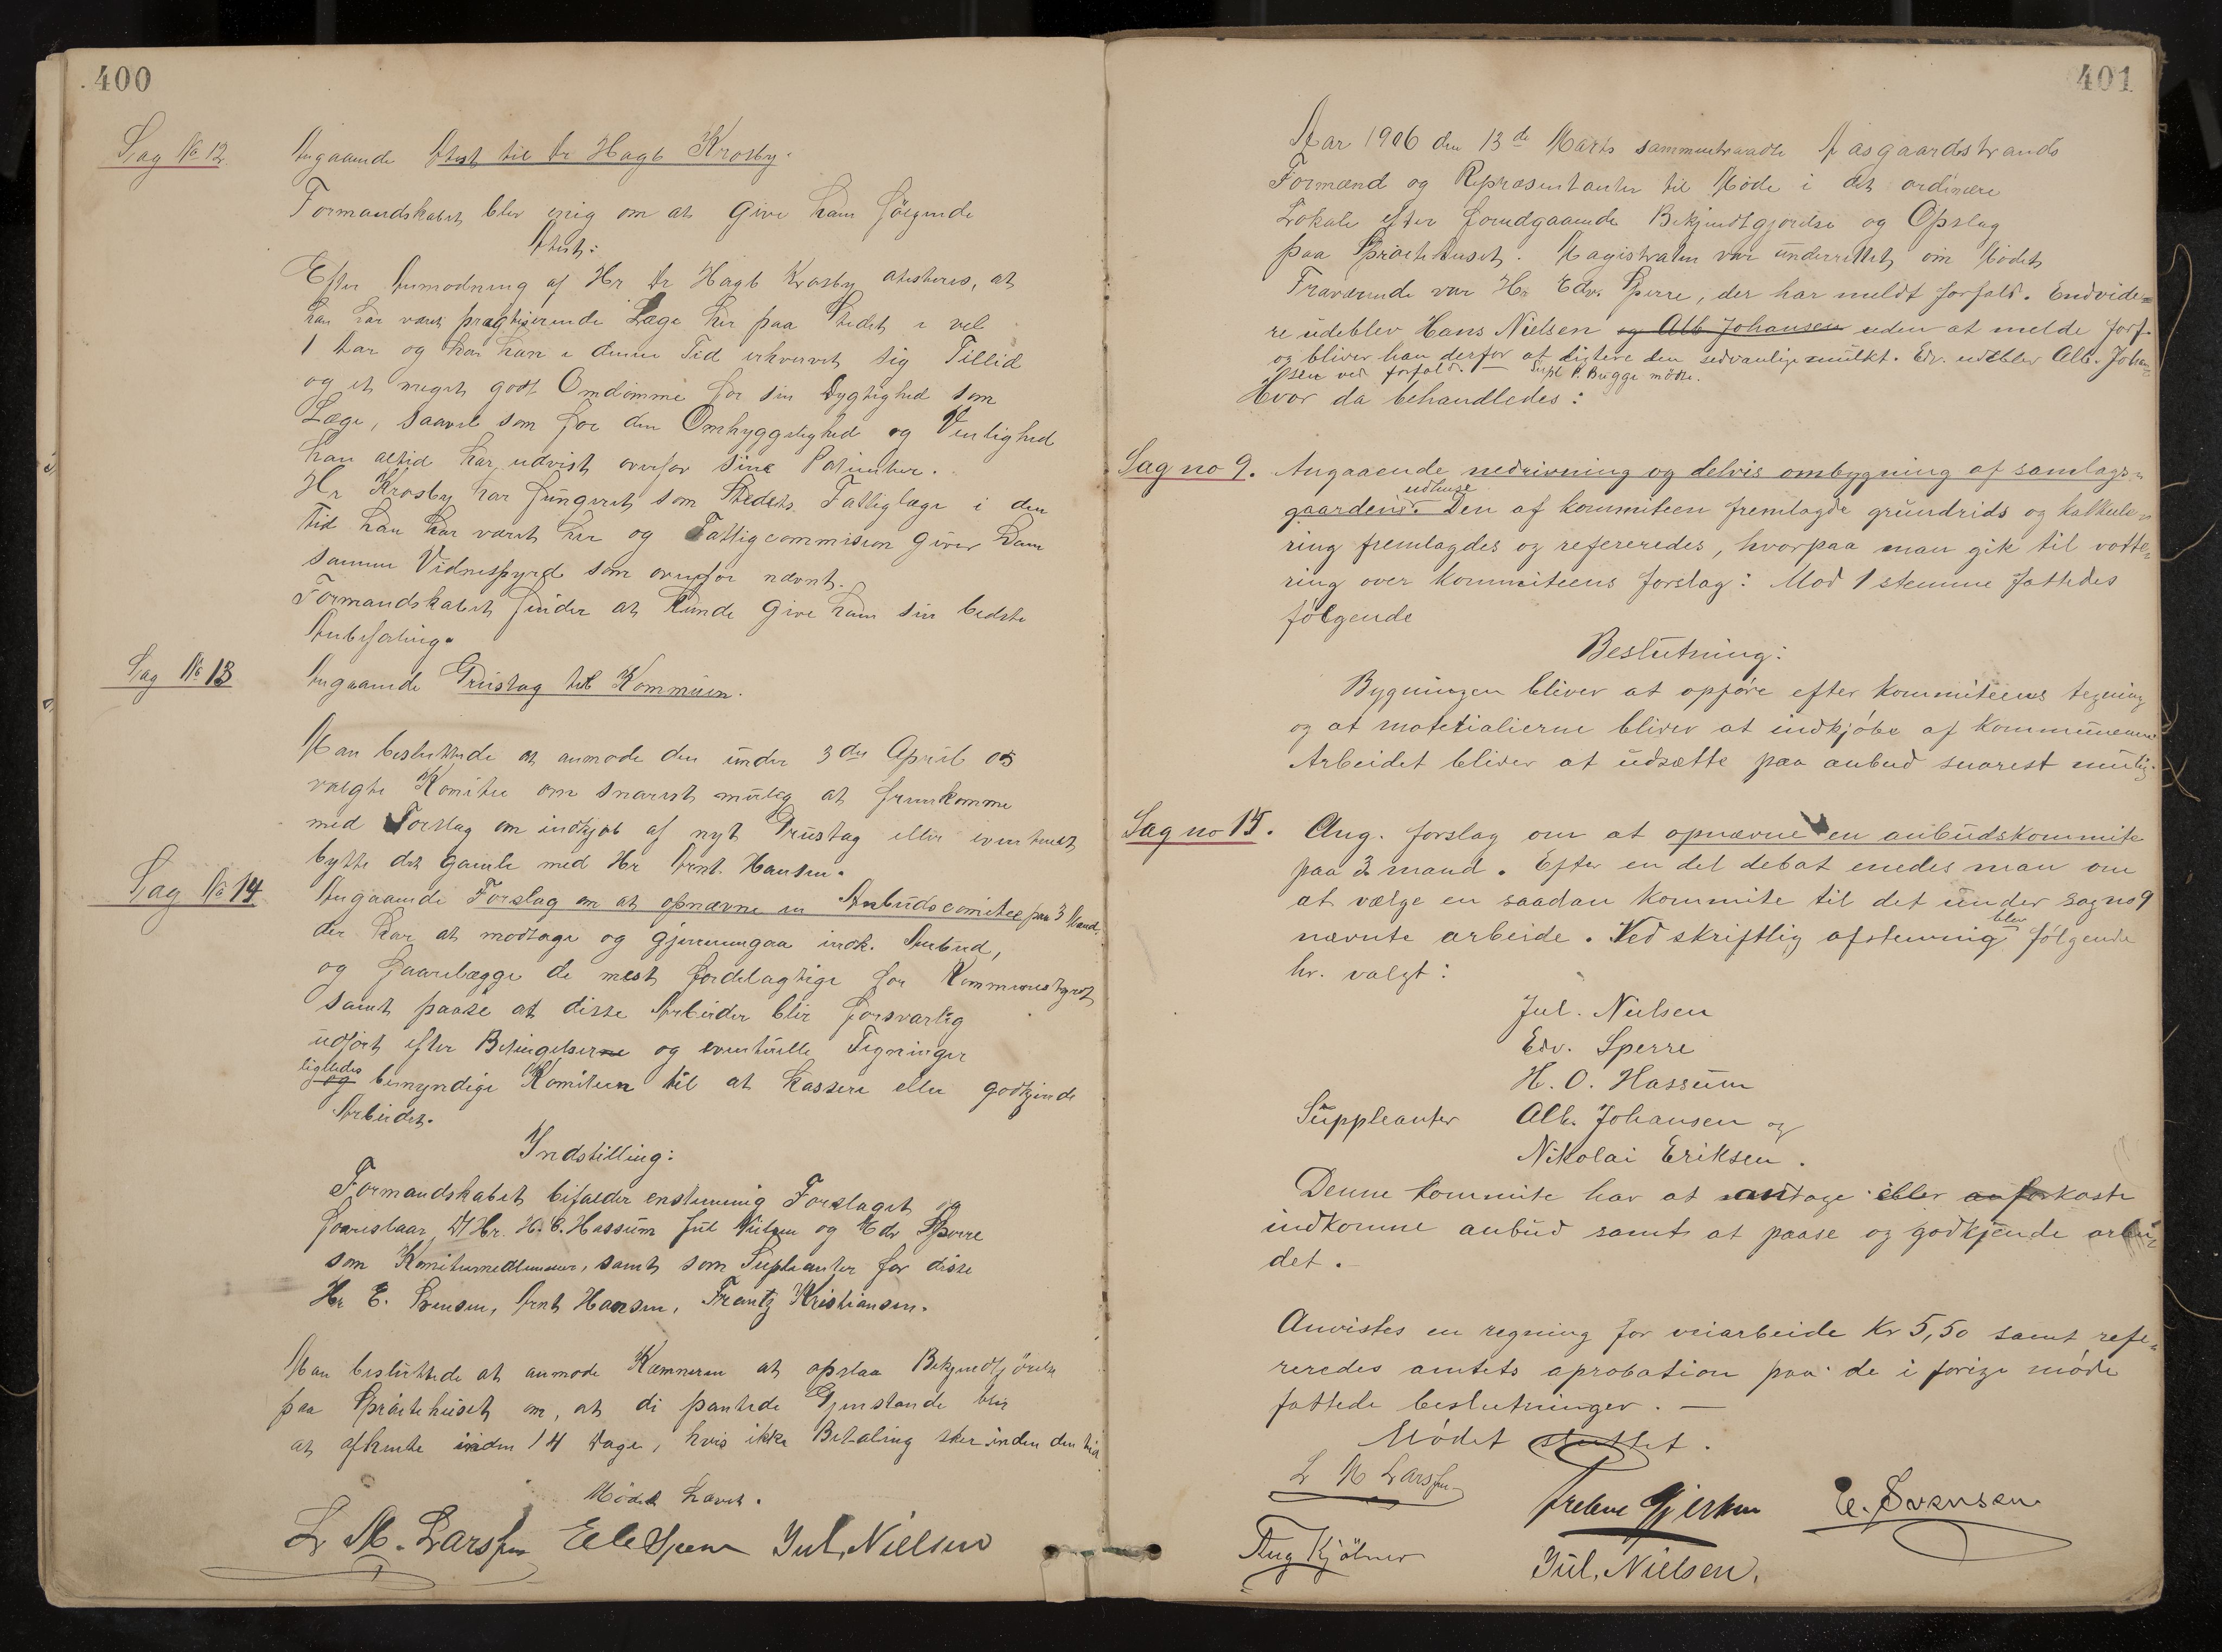 400
Sag No 12
Angaaende Atest til Dr Hagb Krosby.
Formandskabet blev enig om at give ham følgende
Atest:
Efter Anmodning af Hr Dr Hagb Krosby atesteres, at
han har været pragtiserende Læge her paa Stedet i vel
1 Aar og har han i denne Tid erhvervet sig Tillid
og et meget godt Omdømme for sin Dygtighed som
Læge, saavel som for den Omhyggelighed og Venlighed
han altid har udvist overfor sine Patienter.
Hr Krosby har fungeret som Stedets Fattiglæge i den
Tid han har været her og Fattigcommision giver ham
samme Vidnesbyrd som ovenfor nævnt.
Formandskabet finder at kunde give ham sin bedste
Anbefaling.
Sag No 13
Angaaende Grustag til Kommunen.
Man besluttede at anmode den under 3die April 05
valgte Komite om snarest mulig at fremkomme
med Forslag om indkjøb af nyt Grustag eller eventuelt
bytte det gamle med Hr Arnt Hansen.
Sag No 14
Angaaende Forslag om at opnævne en Anbudscomitee paa 3 Mand,
der har at modtage og gjennemgaa indk. Anbud,
og foarelægge de mest fordelagtige for Kommunestyret
samt paase at disse Arbeider blir forsvarlig
udført efter Betingelserne og eventuelle Tegninger
ligeledes
og bemyndige Komiteen til at kassere eller godkjende
Arbeidet.
Indstilling:
Formandskabet bifalder enstemmig Forslaget og
foareslaar D'Hr. H. O. Hassum Jul Nielsen og Edv Sperre
som Komitemedlemmer, samt som Supleanter for disse
Hr E. Svensen, Arnt Hansen, Frantz Kristiansen.
Man besluttede at anmode Kæmneren at opslaa Bekjendtgjörelse
paa Spröitehuset om, at di pantede Gjenstande blir
at afhente inden 14 Dage, hvis ikke Betaling sker inden den tid
Mødet hævet.
L M. Larssen Edv Sperre Jul. Nielsen
401
Aar 1906 den 13de Marts sammentraadte Aasgaardstrands
Formænd og Repræsentanter til Møde i det ordinære
Lokale efter forudgaaende Bekjendtgjørelse og Opslag
paa Sprøitehuset. Magistraten var underrettet om Mødet
Fraværende var Hr Edv. Sperre, der har meldt forfald. Endvide=
re udeblev Hans Nielsen og Alb Johansen uden at melde forf.
og bliver han derfor at ligtere den sedvanlige mulkt. Edv. udeblev Alb. Johan
sen ved forfald. — Supl P. Bugge mötte.
Hvor da behandledes:
Sag no 9. Angaaende nedrivning og delvis ombygning af samlags=
udhuse
gaardens. Den af kommiteen fremlagde grundrids og kalkule=
ring fremlagdes og refereredes, hvorpaa man gik til votte=
ring over kommiteens forslag: Mod 1 stemme fattedes
følgende
Beslutning:
Bygningen bliver at opføre efter kommiteens tegning
og at materialierne bliver at indkjøbe af kommunen
Arbeidet bliver at udsætte paa anbud snarest mulig.
Sag no 15. Ang. forslag om at opnævne en anbudskommite
paa 3 mand. Efter en del debat enedes man om
at vælge en saadan kommite til det under sag no 9
blev
nævnte arbeide. Ved skriftlig afstemnig følgende
hr. valgt:
Jul. Nielsen
Edv. Sperre
H. O. Hassum
Suppleanter Alb. Johansen og
Nikolai Eriksen.
Denne kommite har at antage eller forkaste
indkomne anbud samt at paase og godkjende arbei=
det.
Anvistes en regning for veiarbeide Kr 5,50 samt refe=
reredes amtets aprobation paa de i forige møde
fattede beslutninger. —
Mødet sluttet.
L M Larssen
E. Svensen
Aug Kjölner
Jul. Nielsen.